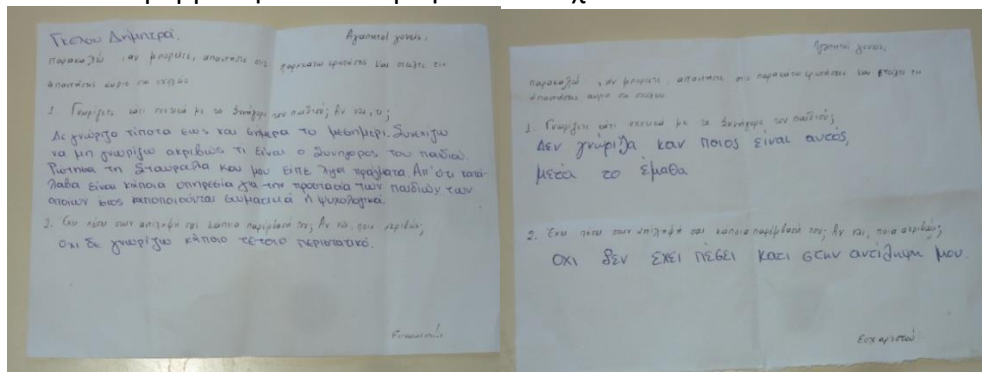 Γκέλου Δήμητρα.
Αγαπητοί γονείς,
παρακαλώ, αν μπορείτε, απαντήστε στις παρακάτω ερωτήσεις και στείλτε τις
απαντήσεις αύριο στο σχολείο
1. Γνωρίζετε κάτι σχετικά με το Συνήγορο του παιδιού; Αν ναι, τι;
Δε γνώριζα τίποτα εως και σήμερα το μεσημέρι. Συνεχίζω
να μη γνωρίζω ακριβώς τι είναι ο Συνήγορος του παιδιού.
Ρώτησα τη Σταυρούλα και μου είπε λίγα πράγματα. Απ' ότι κατά-
λαβα είναι κάποια υπηρεσία για την προστασία των παιδιών των
οποίων κακοποιούνται σωματικά ή ψυχολογικά.
2. Έχει πέσει στην αντίληψή σας κάποια παρέμβασή του; Αν ναι, ποια ακριβώς;
Οχι δε γνωρίζω κάποιο τέτοιο περιστατικό.
Αγαπητοί γονείς,
παρακαλώ, αν μπορείτε, απαντήστε στις παρακάτω ερωτήσεις και στείλτε τις
απαντήσεις αύριο στο σχολείο.
1. Γνωρίζετε κάτι σχετικά με το Συνήγορο του παιδιού;
Δεν γνώριζα καν ποιος είναι αυτός,
μετά το έμαθα
2. Έχει πέσει στην αντίληψή σας κάποια παρέμβασή του; Αν ναι, ποια ακριβώς;
Οχι δεν έχει πέσει κατι στην αντίληψη μου.
Ευχαριστώ